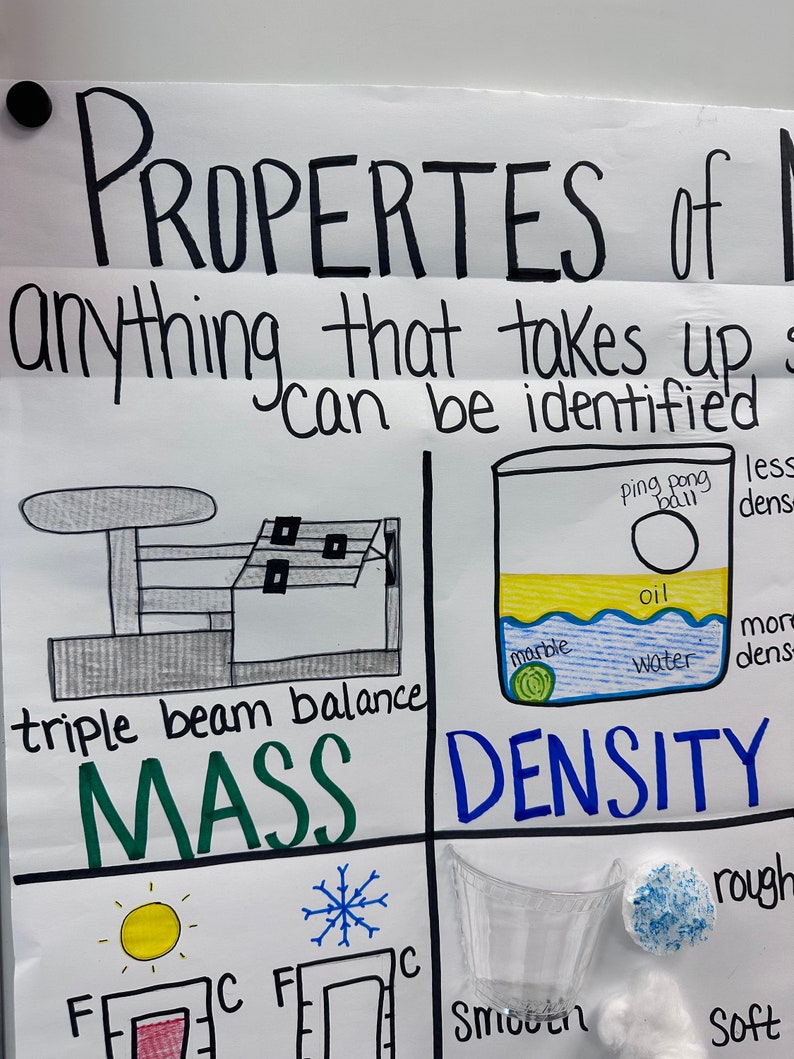 PROPERTES of
anything that takes up
can be identified
ping pong
ball
less
oil
more
marble
water
triple beam balance
MASS
DENSITY
rough
F C
F C
smooth
soft